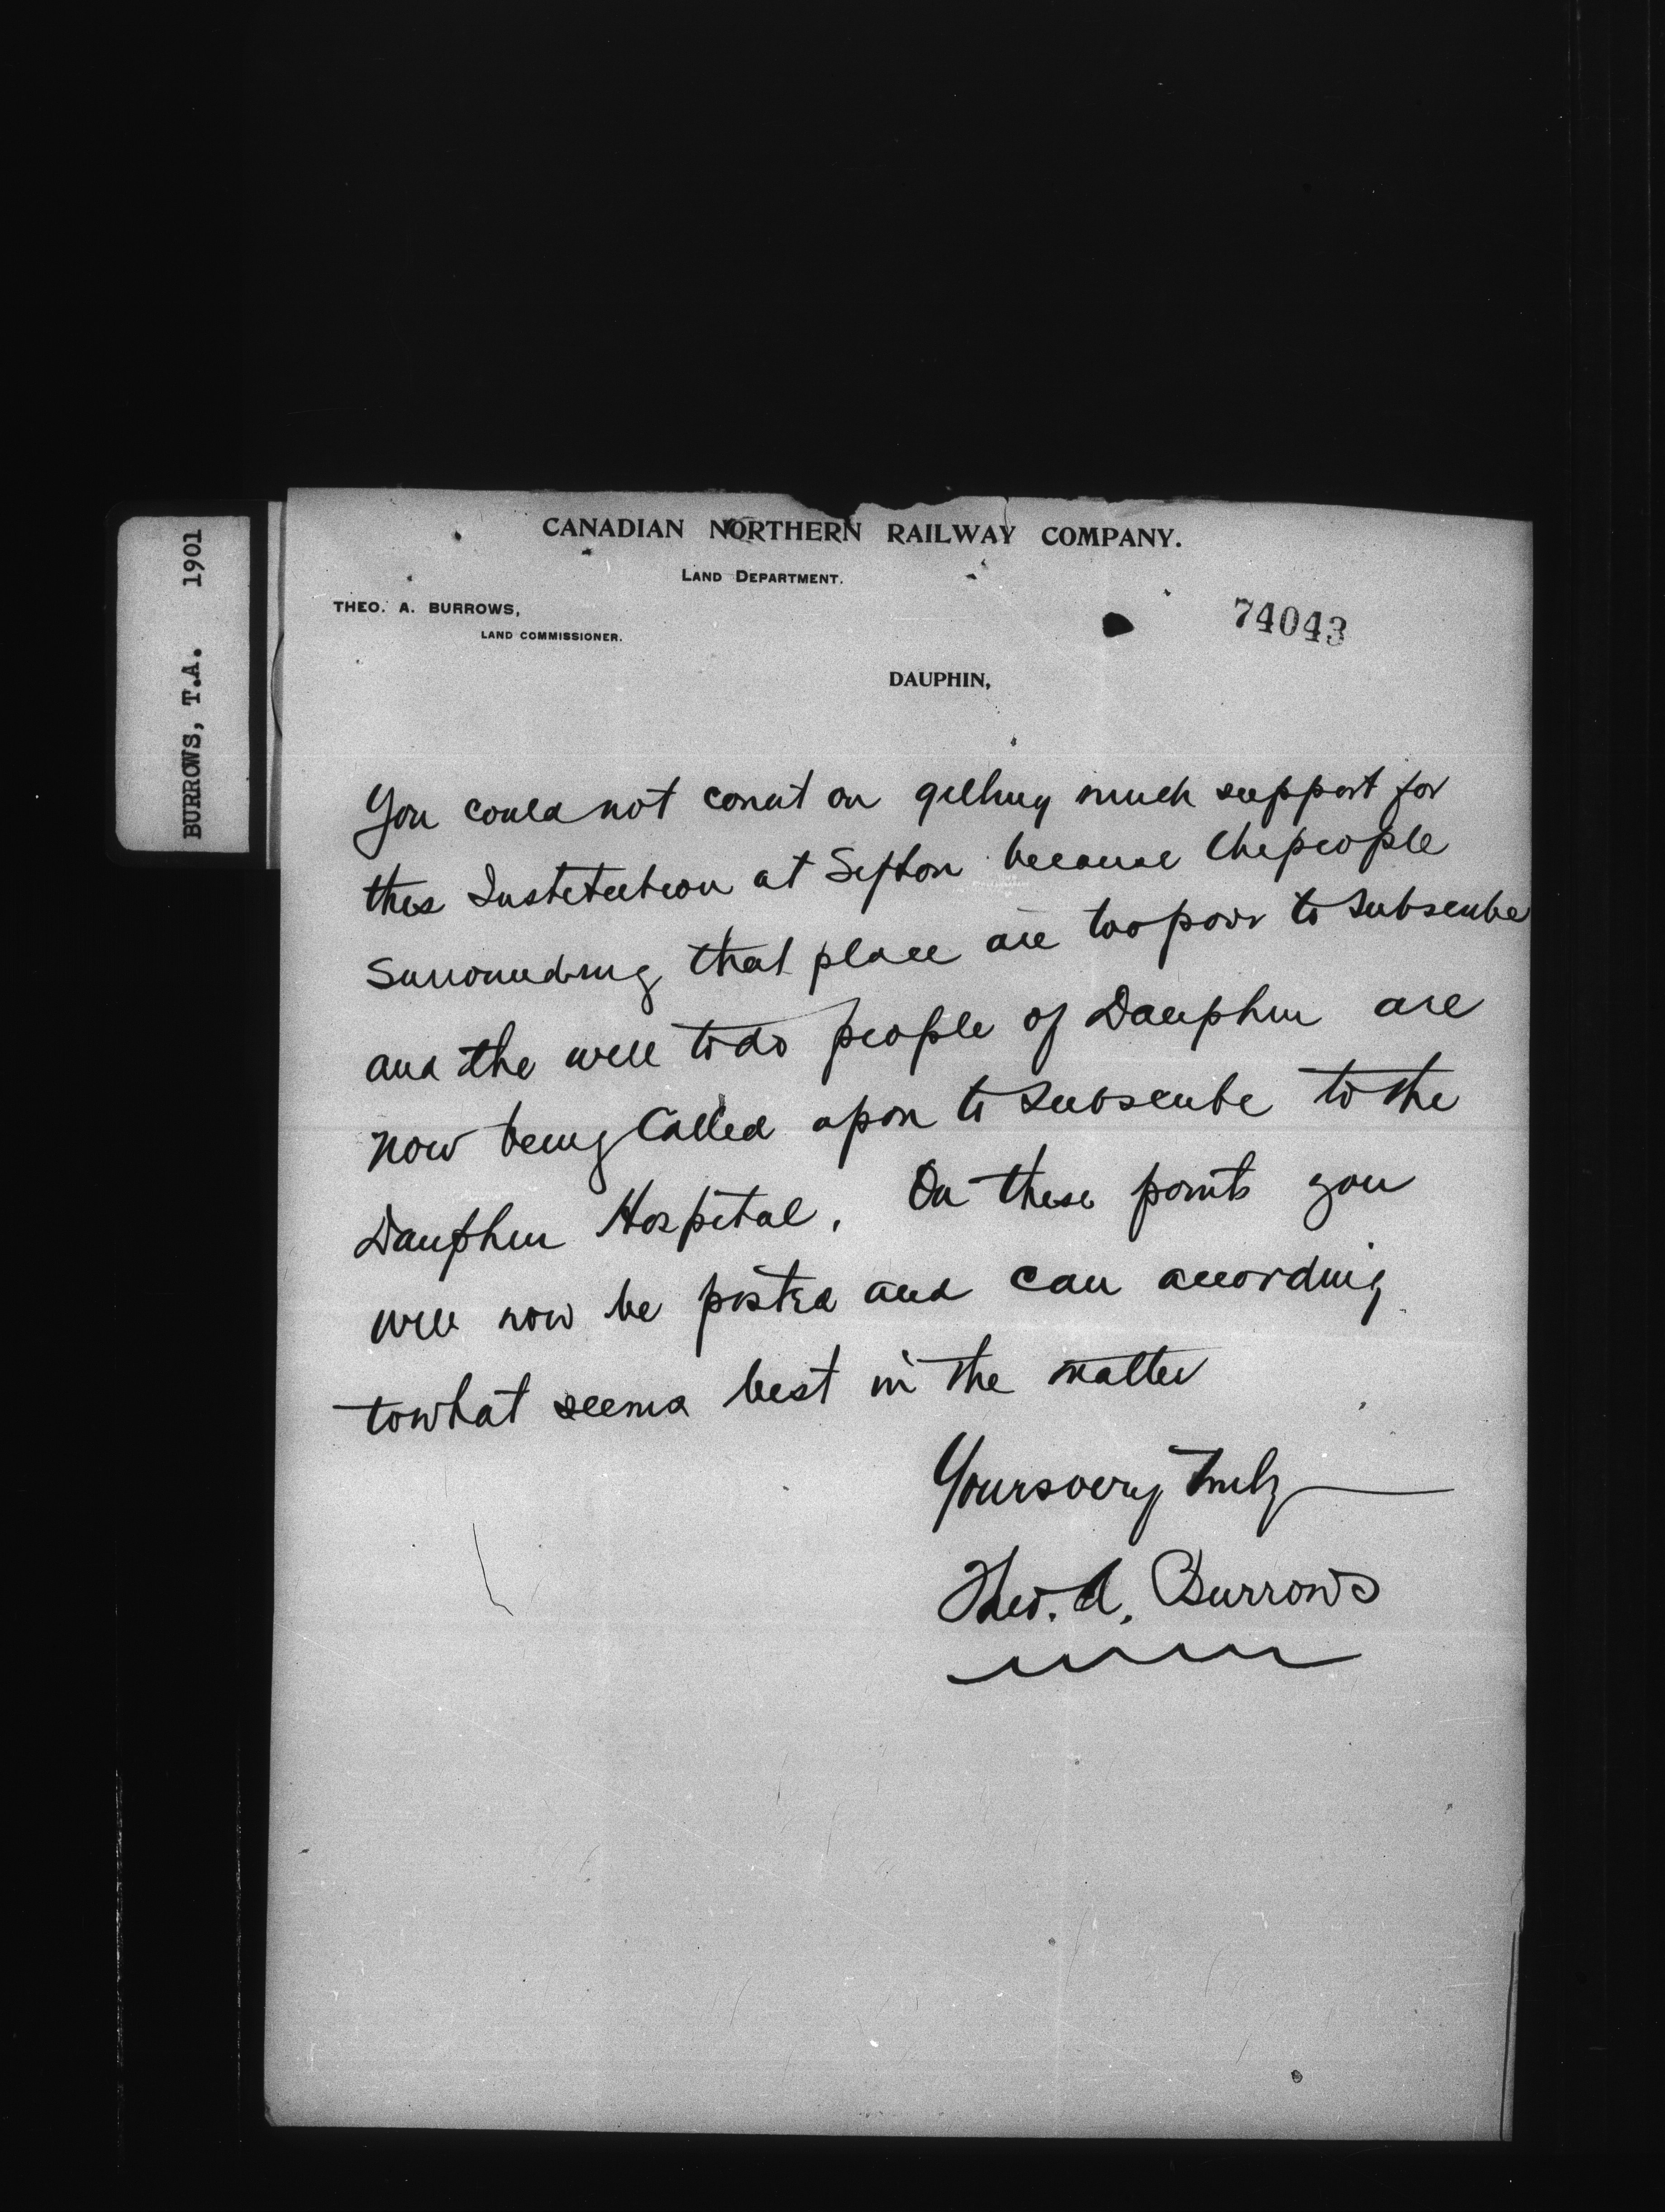 BURROWS, T.A. 1901
CANADIAN NORTHERN RAILWAY COMPANY.
LAND DEPARTMENT.
THEO. A. BURROWS,
LAND COMMISSIONER.
74043
DAUPHIN,
You could not count on getting much support for
this Institution at Sifton because the people
surrounding that place are too poor to subscribe
and the well to do people of Dauphin are
now being called upon to subscribe to the
Dauphin Hospital. On these points you
will now be posted and can according
to what seems best in the matter
Yours very truly
Theo. A. Burrows